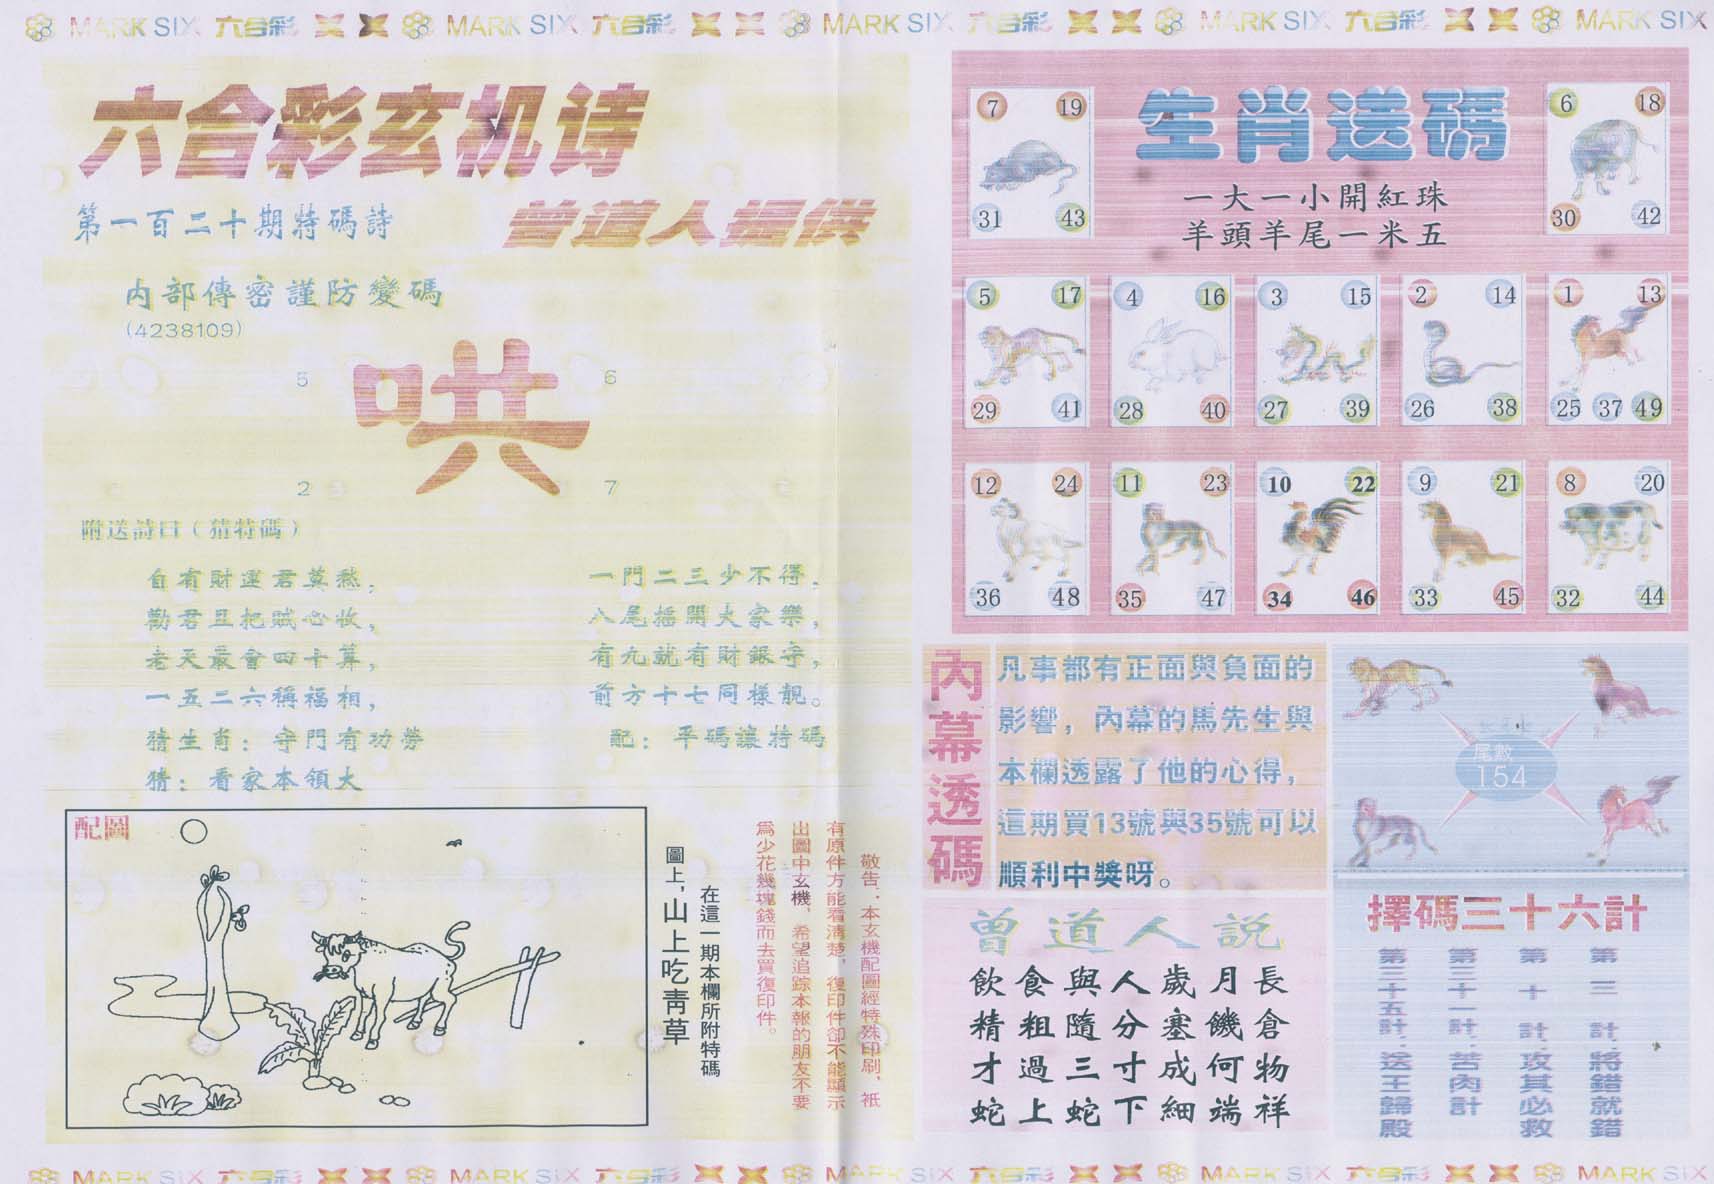 MARK SIX 六合彩 MARK SIX 六合彩 MARK SIX 六合彩 MARK SIX 六合彩 MARK SIX
六合彩玄机诗
第一百二十期特碼詩
曾道人提供
内部傳密謹防變碼
(4238109)
5 6
哄
2 7
附送詩曰（猜特碼）
自有財運君莫愁，
勸君且把賊心收，
老天最會四十算，
一五二六稱福相，
猜生肖：守門有功勞
猜：看家本領大
一門二三少不得，
八尾摇開大家樂，
有九就有財銀守，
前方十七同樣靓。
配：平碼讓特碼
配圖
在這一期本欄所附特碼
圖上，山上吃靑草
敬告：本玄機配圖經特殊印刷，衹
有原件方能看清楚，復印件卻不能顯示
出圖中玄機，希望追踪本報的朋友不要
爲少花幾塊錢而去買復印件。
生肖送碼
一大一小開紅珠
羊頭羊尾一米五
7 19
31 43
6 18
30 42
5 17
29 41
4 16
28 40
3 15
27 39
2 14
26 38
1 13
25 37 49
12 24
36 48
11 23
35 47
10 22
34 46
9 21
33 45
8 20
32 44
內幕透碼
凡事都有正面與負面的
影響，內幕的馬先生與
本欄透露了他的心得，
這期買13號與35號可以
順利中獎呀。
尾數
154
曾道人説
飲食與人歲月長
精粗隨分塞饑倉
才過三寸成何物
蛇上蛇下細端祥
擇碼三十六計
第三計：將錯就錯
第十計：攻其必救
第三十一計：苦肉計
第三十五計：送王歸殿
MARK SIX 六合彩 MARK SIX 六合彩 MARK SIX 六合彩 MARK SIX 六合彩 MARK SIX